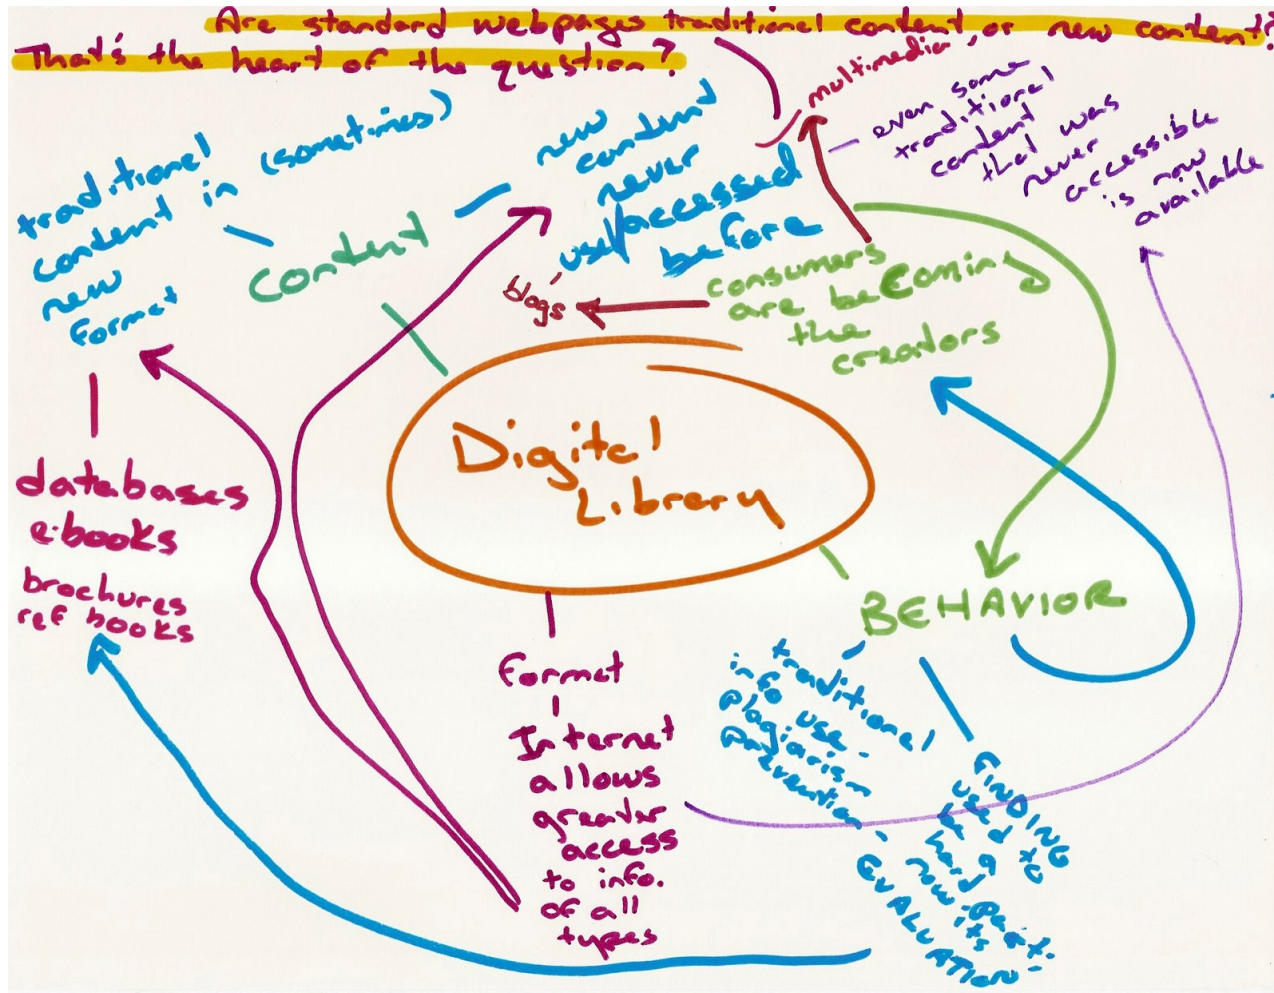 Are standard webpages traditional content, or new content?
That's the heart of the question?
traditional
content in (sometimes)
new
format
content
new
content
never
used/accessed
before
multimedia
even some
traditional
content
that was
never
accessible
is now
available
blogs
consumers
are becoming
the
creators
Digital
Library
databases
e-books
brochures
ref books
format
Internet
allows
greater
access
to info.
of all
types
BEHAVIOR
traditional
info use -
plagiarism
FINDING
used to
be a
hard part.
now its
EVALUATION -